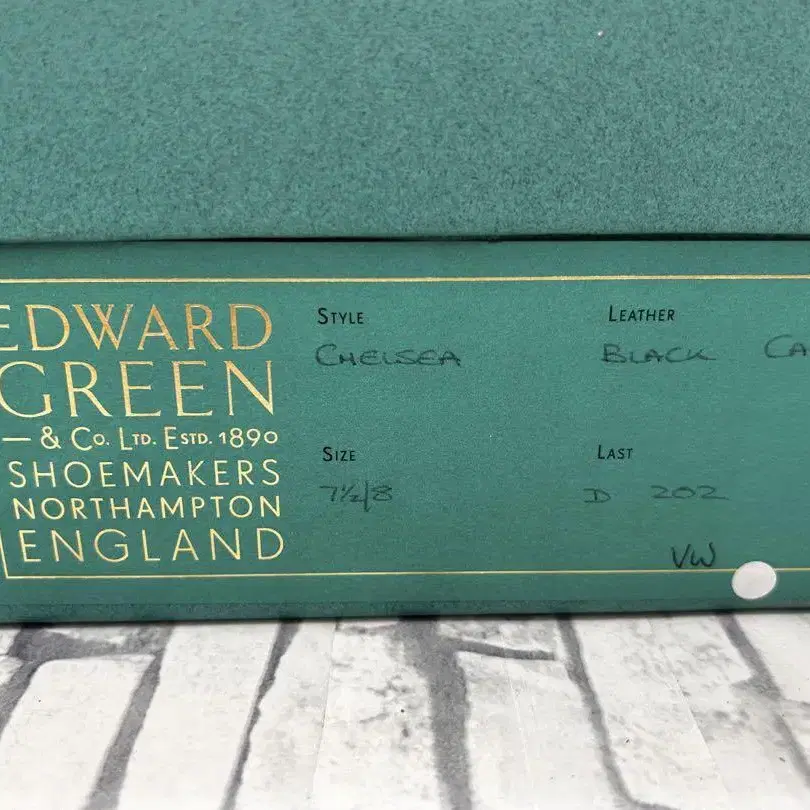 EDWARD
GREEN
— & Co. Ltd. Estd. 1890
SHOEMAKERS
NORTHAMPTON
ENGLAND
Style
Chelsea
Leather
Black Ca
Size
7½/8
Last
D 202
VW